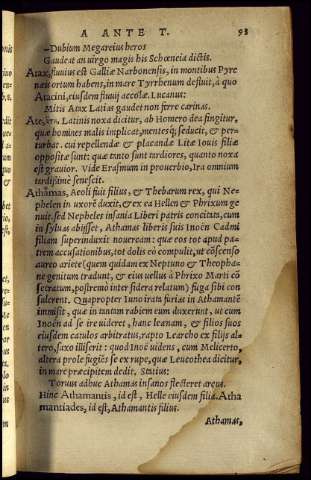 A ANTE T. 93
–Dubium Megareius heros
Gaudeat an uirgo magis his Schœneia dictis.
Atax, fluuius est Galliæ Narbonensis, in montibus Pyre
næis ortum habens, in mare Tyrrhenum defluit, à quo
Atacini, eiusdem fluuij accolæ. Lucanus:
Mitis Atax Latias gaudet non ferre carinas.
Ate, Latinis noxa dicitur, ab Homero dea fingitur,
quæ homines malis implicat, mentesq; seducit, & per-
turbat. cui repellendæ & placandæ Litæ Iouis filiæ
oppositæ sunt: quæ tanto sunt tardiores, quanto noxa
est grauior. Vide Erasmum in prouerbio, Ira omnium
tardissimè senescit.
Athamas, Aeoli fuit filius, & Thebarum rex, qui Ne-
phelen in uxorē duxit, & ex ea Hellen & Phrixum ge
nuit. sed Nepheles insania Liberi patris concitata, cum
in syluas abijsset, Athamas liberis suis Inoën Cadmi
filiam superinduxit nouercam: quæ eos tot apud pa-
trem accusationibus, tot dolis eò compulit, ut cōscenso
aureo ariete (quem quidam ex Neptuno & Theopha-
ne genitum tradunt, & eius uellus à Phrixo Marti cō
secratum, postremò inter sidera relatum) fuga sibi con
sulerent. Quapropter Iuno iratā furias in Athamantē
immisit, quæ in tantam rabiem eum duxerunt, ut cum
Inoën ad se ire uideret, hanc leænam, & filios suos
eiusdem catulos arbitratus, rapto Learcho ex filijs al-
tero, saxo illiserit: quod Inoë uidens, cum Melicerto,
altera prole fugiēs se ex rupe, quæ Leucothea dicitur,
in mare præcipitem dedit. Statius:
Toruus adhuc Athamas insanos flecteret arcus.
Hinc Athamantis, id est, Helle eiusdem filia. Atha
mantiades, id est, Athamantis filius.
Athamas,